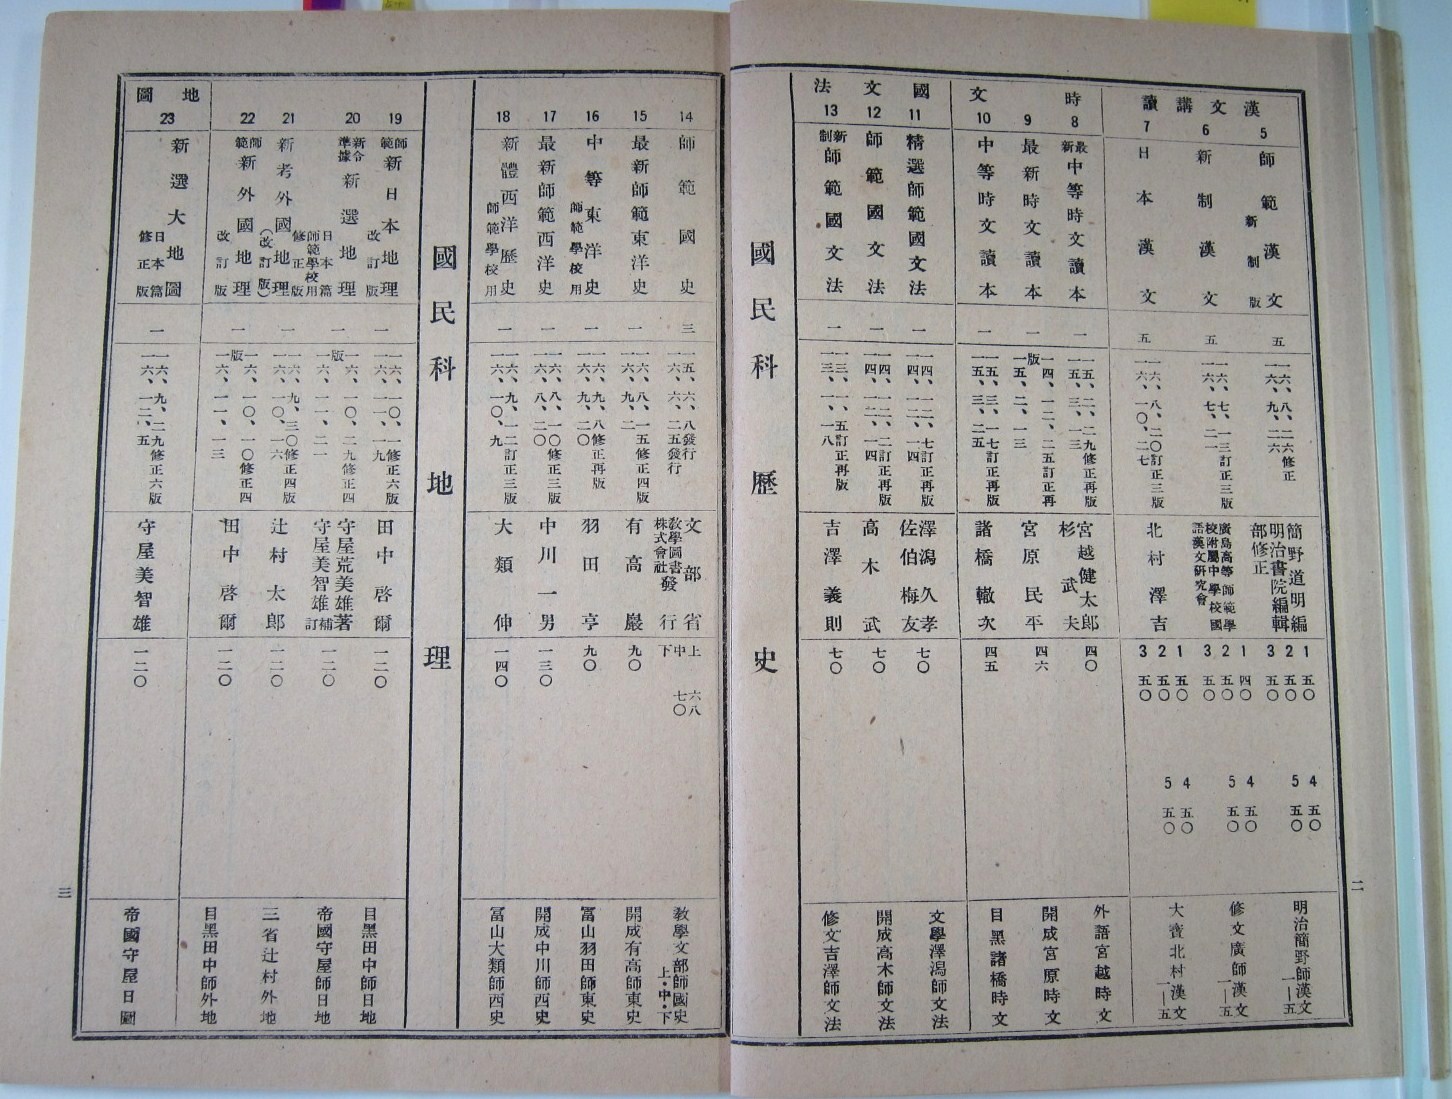 漢文講讀
5
師範漢文
新制版
五
一六、八、二六修正
一六、九、二六
簡野道明編
明治書院編輯
部修正
1 五〇
2 五〇
3 五〇
4 五〇
5 五〇
明治簡野師漢文
一—五
6
新制漢文
五
一六、七、一三訂正三版
一六、七、二一
廣島高等師範學
校附屬中學校國
語漢文研究會
1 四〇
2 五〇
3 五〇
4 五〇
5 五〇
修文廣師漢文
一—五
7
日本漢文
五
一六、八、二〇訂正三版
一六、一〇、二七
北村澤吉
1 五〇
2 五〇
3 五〇
4 五〇
5 五〇
大資北村漢文
一—五
時文
8
最新中等時文讀本
一
一五、二、二九修正再版
一五、三、一三
宮越健太郎
杉武夫
四〇
外語宮越時文
9
最新時文讀本
一
一四、一二、二五訂正再版
一五、二、一三
宮原民平
四六
開成宮原時文
10
中等時文讀本
一
一五、三、一七訂正再版
一五、三、二五
諸橋轍次
四五
目黑諸橋時文
國文法
11
精選師範國文法
一
一四、一二、七訂正再版
一四、一二、一四
澤潟久孝
佐伯梅友
七〇
文學澤潟師文法
12
師範國文法
一
一四、一二、二訂正再版
一四、一二、一四
高木武
七〇
開成高木師文法
13
新制師範國文法
一
一三、一、五訂正再版
一三、一、一八
吉澤義則
七〇
修文吉澤師文法
國民科歷史
二
14
師範國史
三
一五、六、八發行
一六、六、二五發行
文部省
教學圖書株式會社發行
上 六八
中 七〇
下
教學文部師國史
上・中・下
15
最新師範東洋史
一
一六、八、一五修正四版
一六、九、二
有高巖
九〇
開成有高師東史
16
中等東洋史
師範學校用
一
一六、九、八修正再版
一六、九、二〇
羽田亨
九〇
冨山羽田師東史
17
最新師範西洋史
一
一六、八、一〇修正三版
一六、八、二〇
中川一男
一三〇
開成中川師西史
18
新體西洋歷史
師範學校用
一
一六、九、一二訂正三版
一六、一〇、九
大類伸
一四〇
冨山大類師西史
國民科地理
19
師範新日本地理
改訂版
一
一六、一〇、一修正六版
一六、一一、一九
田中啓爾
一二〇
目黑田中師日地
20
新令準據新選地理
日本篇
師範學校用
修正版
一
一六、一〇、二九修正四版
一六、一一、二一
守屋荒美雄著
守屋美智雄補訂
一二〇
帝國守屋師日地
21
新考外國地理
(改訂版)
一
一六、九、三〇修正四版
一六、一〇、一六
辻村太郎
一二〇
三省辻村外地
22
師範新外國地理
改訂版
一
一六、一〇、一〇修正四版
一六、一一、一三
田中啓爾
一二〇
目黑田中師外地
地圖
23
新選大地圖
日本篇
修正版
一
一六、九、二九修正六版
一六、一二、五
守屋美智雄
一二〇
帝國守屋日圖
三